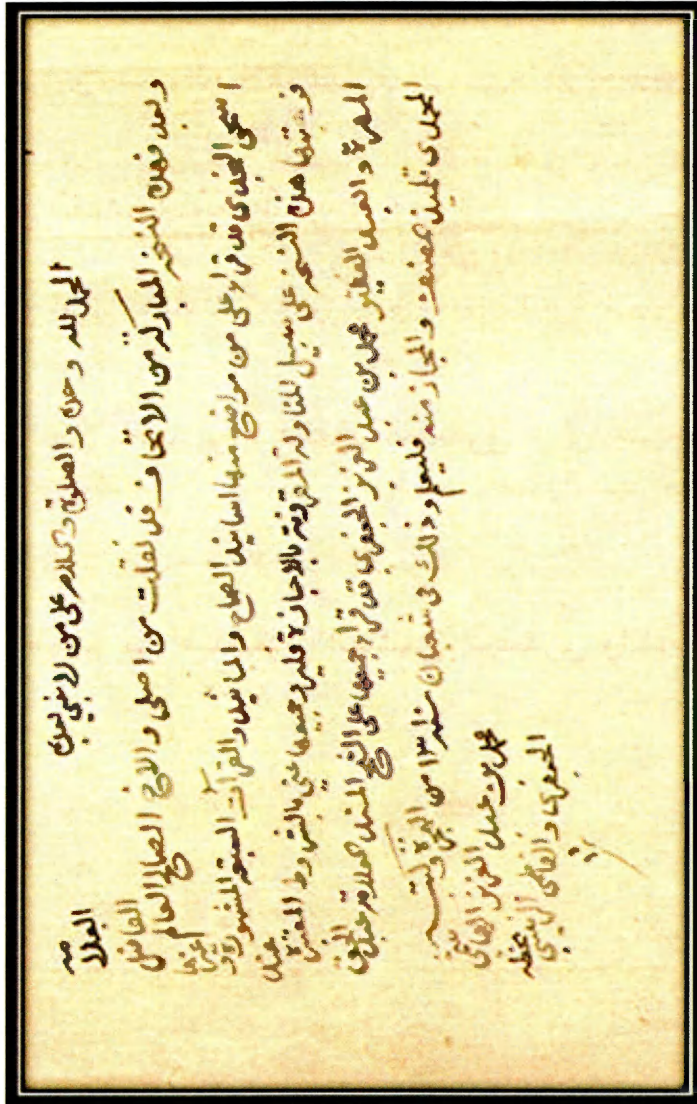 الحمد لله وحده والصلوة وسلام على من لا نبي بعده
وبعد فهذه النسخة المباركة من الاتحاف قد نقلت من اصلي والاخ الصالح العالم الفاضل العلامة
اسحق النجدي قد قرا علي من مواضع منها اسانيد الصحاح والمسانيد والقرآت السبعة المشهورة وغيرها
وقد هذه النسخة على سبيل المناولة المقرونة بالاجازة فليرو جميعها عني بالشروط المعتبرة عند
المعرة والعبد الفقير محمد بن عبد العزيز الجعفري قد قرا جميعها على الشيخ المسند مولانا عبد الحق
المحمدي تلميذ مصنفه والمجاز منه فليعلم وذلك في شعبان سنة ١٣ من الهجرة وكتبه
محمد بن عبد العزيز الهاشمي
الجعفري والقاضي الزينبي بخطه